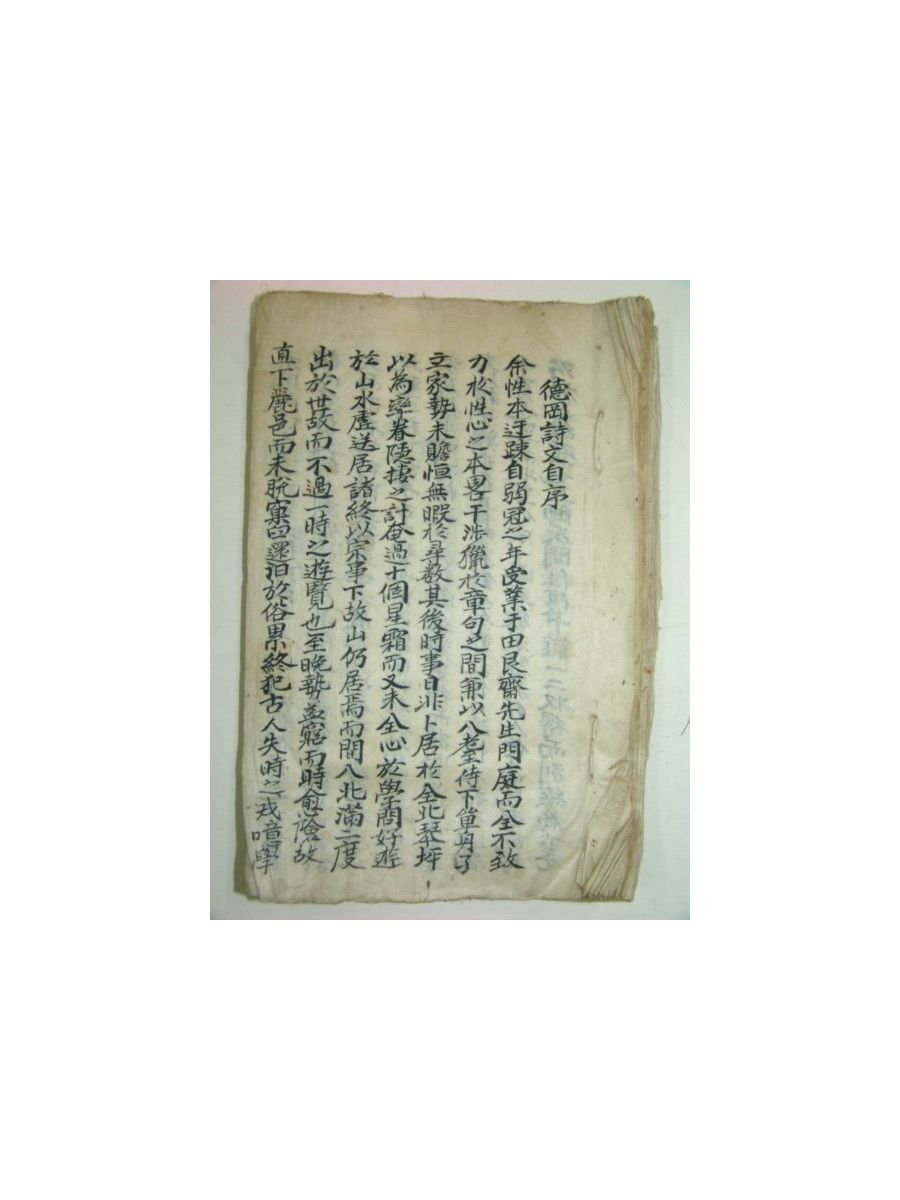 德岡詩文自序
余性本迂踈自弱冠之年受業于田艮齋先生門庭而全不致
力於性心之本畧干涉獵於章句之間兼以八耋侍下單身孑
立家勢未贍恒無暇於尋數其後時事日非卜居於全北琴坪
以為率眷隱捿之計奄過十個星霜而又未全心於學問好遊
於山水虛送居諸終以宗事下故山仍居焉而間入北滿二度
出於世故而不過一時之遊覽也至晩勢益窮而時愈險故
直下麗邑而未脫窠臼還汩於俗累終犯古人失時之戒噫學